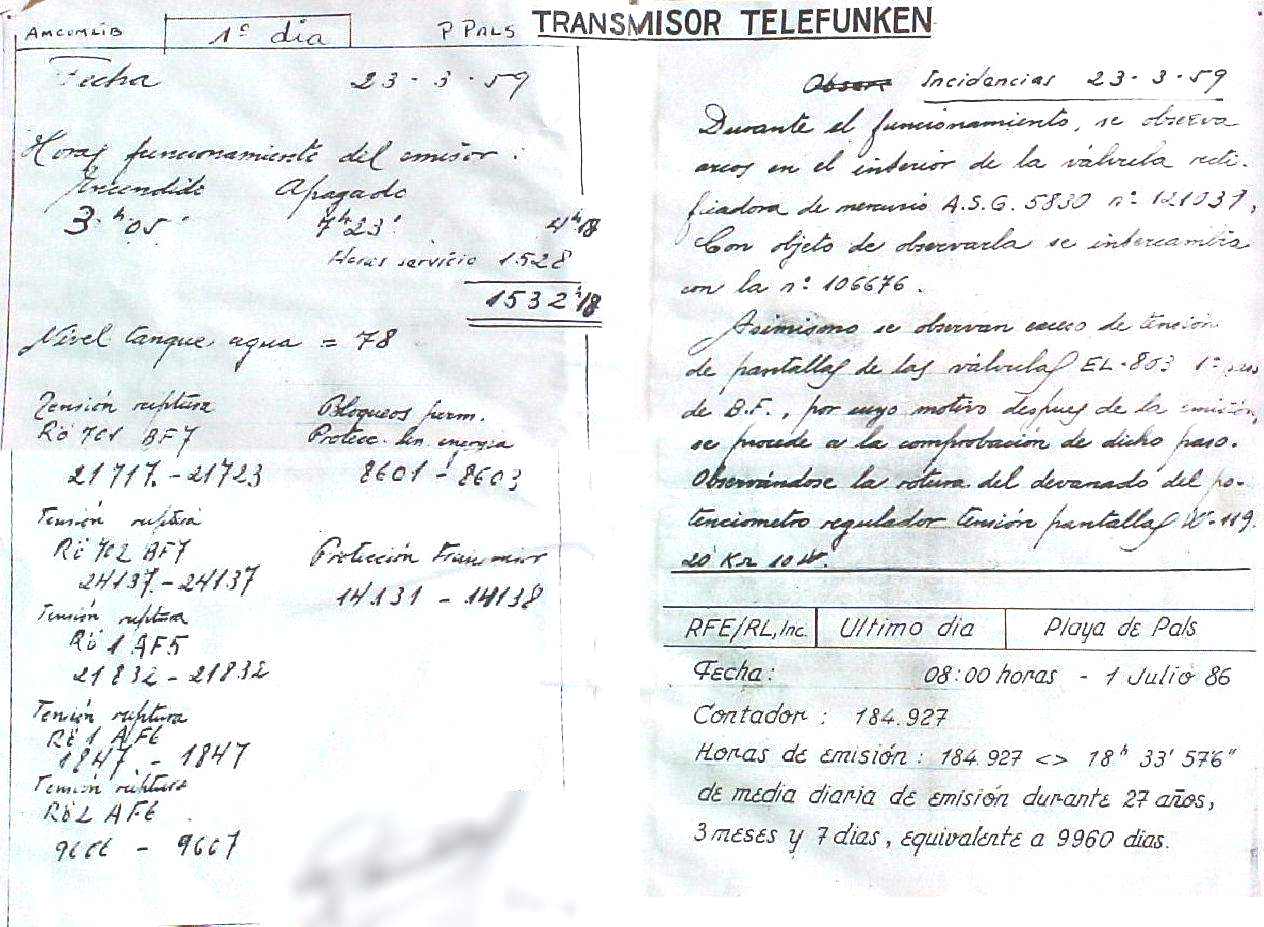 AMCOMLIB 1º dia P PALS TRANSMISOR TELEFUNKEN
Fecha 23-3-59
Horas funcionamiento del emisor:
Encendido Apagado
3h 05' 7h 23' 4h 18
Horas servicio 1528
1532h 18
Nivel tanque agua = 78
Tensión ruptura Bloqueos perm.
Rö 701 BF7 Protecc. sin energia
21717 - 21723 8601 - 8603
Tensión ruptura
Rö 702 BF7 Protección transmisor
24137 - 24137 14131 - 14138
Tensión ruptura
Rö 1 AF5
21832 - 21832
Tensión ruptura
Rö 1 AF6
1847 - 1847
Tensión ruptura
Rö 2 AF6
9666 - 9667
Incidencias 23-3-59
Durante el funcionamiento, se observa
arcos en el interior de la válvula recti-
ficadora de mercurio A.S.G. 5830 nº 121037,
Con objeto de observarla se intercambia
con la nº 106676.
Asimismo se observan exceso de tensión
de pantallas de las válvulas EL-803 1º paso
de B.F., por cuyo motivo despues de la emisión,
se procede a la comprobación de dicho paso.
Observándose la rotura del devanado del po-
tenciometro regulador tensión pantallas W-119.
20 KΩ 10 W.
RFE/RL, Inc. Ultimo dia Playa de Pals
Fecha: 08:00 horas - 1 Julio 86
Contador: 184.927
Horas de emisión: 184.927 <> 18h 33' 57'6"
de media diaria de emisión durante 27 años,
3 meses y 7 dias, equivalente a 9960 dias.